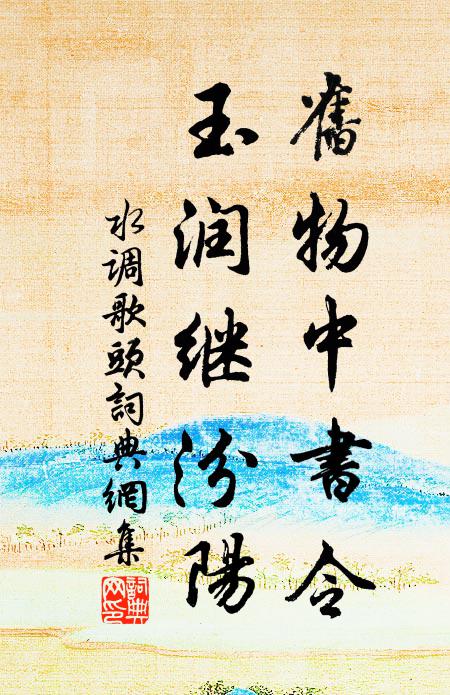 舊物中書令
玉润继汾陽
水调歌頭詞典網集
詞典網印